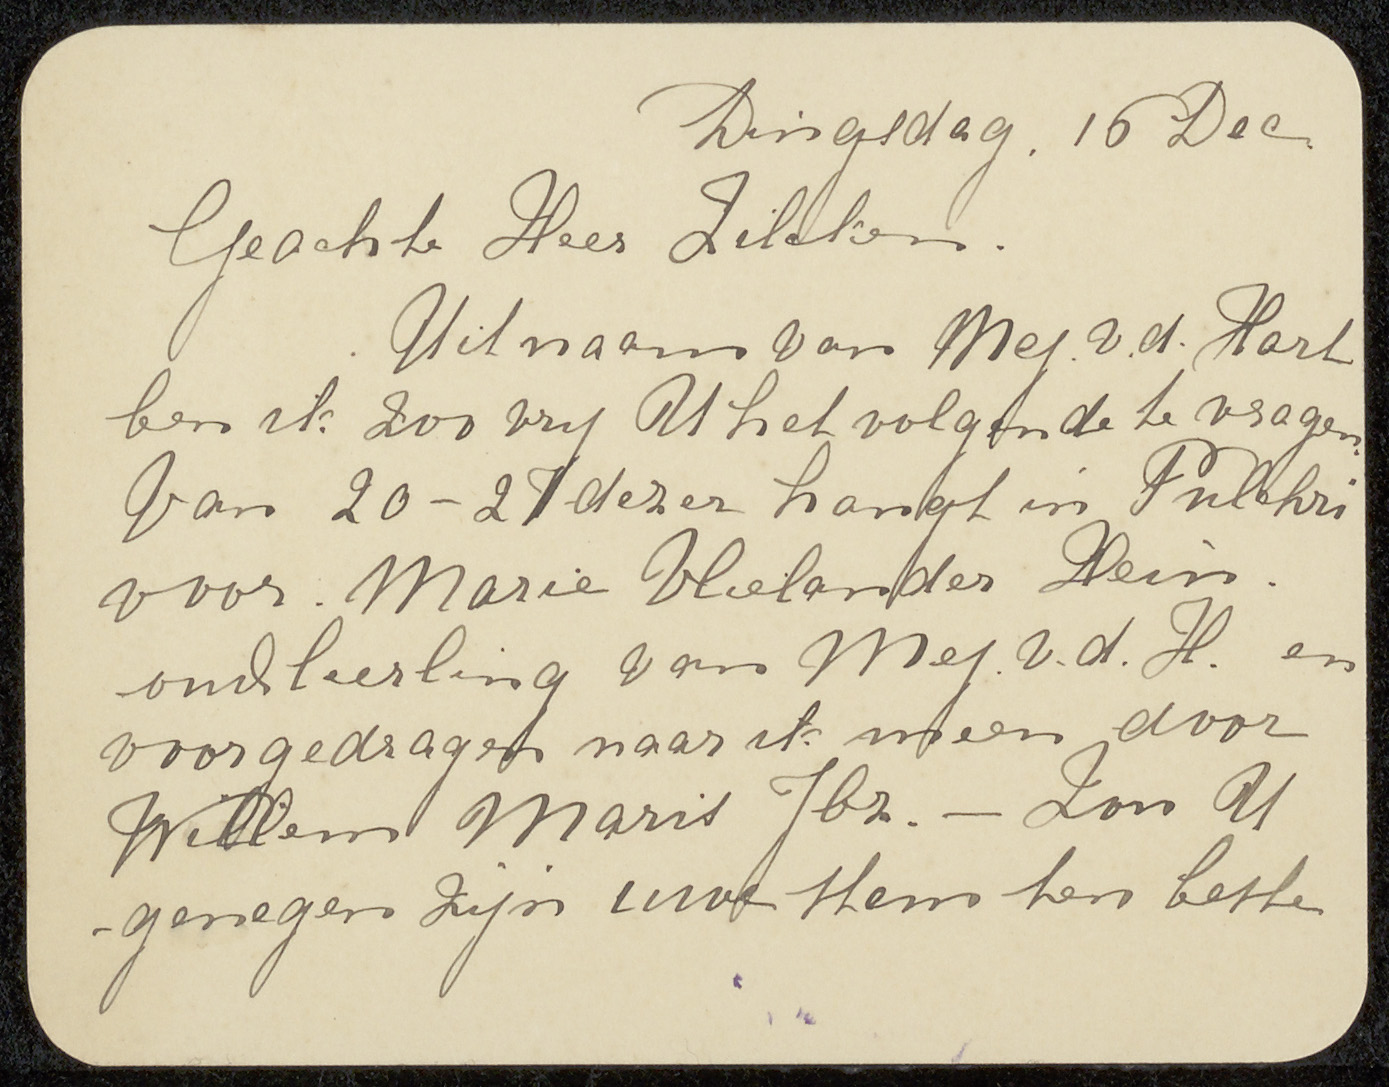 Dingsdag. 16 Dec.
Geachte Heer Zilcken.
Uit naam van Mej. v.d. Hart
ben ik zoo vry U het volgende te vragen.
Van 20-27 dezer hangt in Pulchri
voor. Marie Vlielander Hein.
oudleerling van Mej. v.d. H. en
voorgedragen naar ik meen door
Willem Maris Jbz. — Zou U
genegen zijn uwe stem ten beste